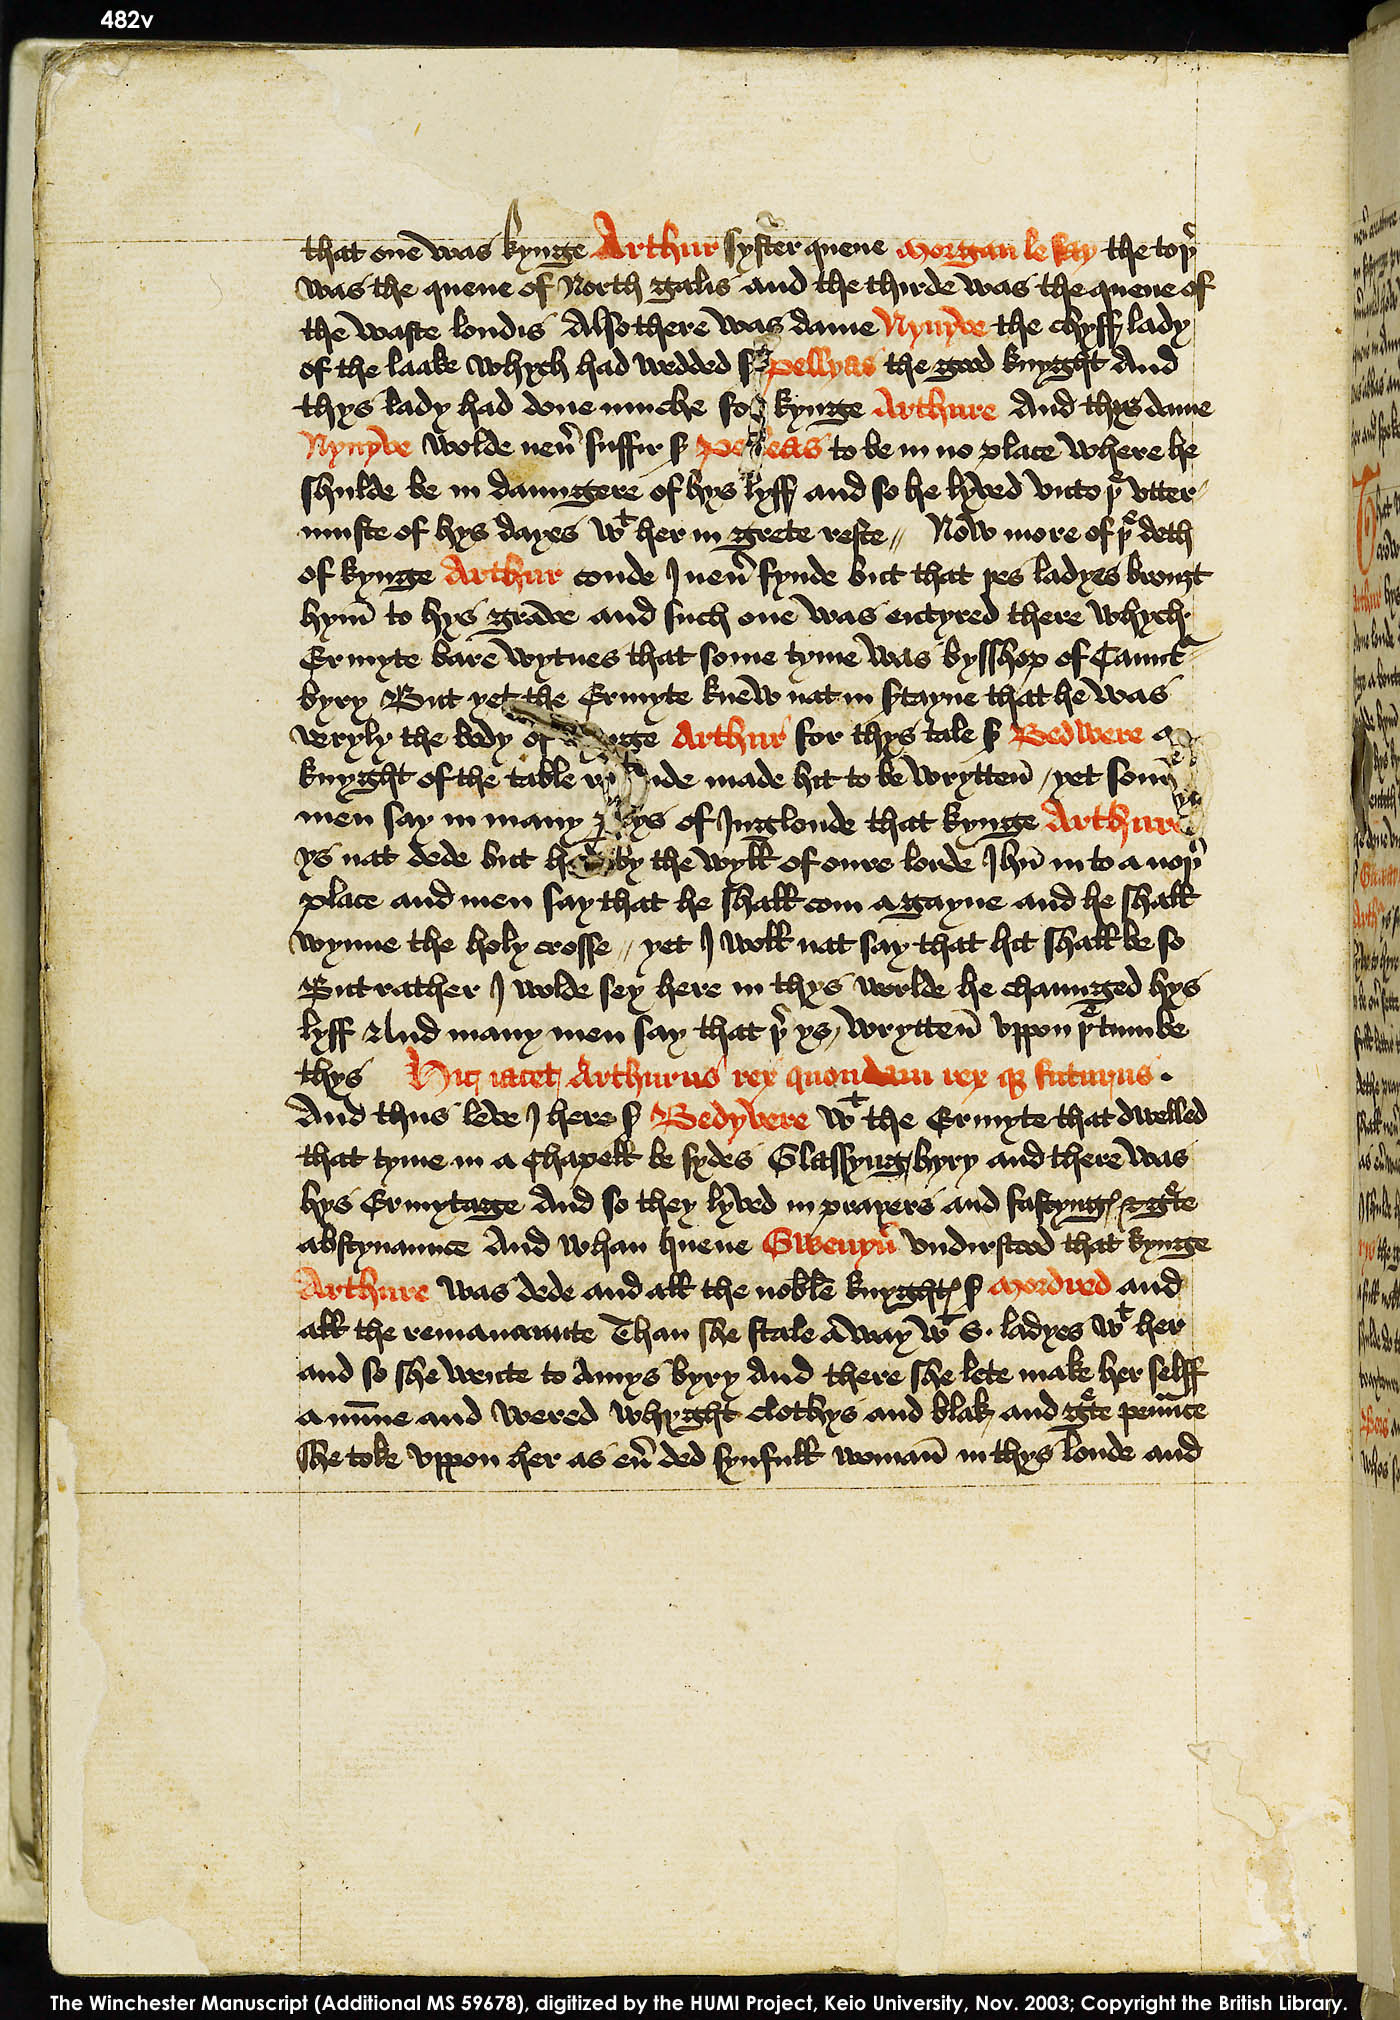 482v
that one was kynge Arthur syster quene Morgan le Fay the toþr
was the quene of North galis and the thirde was the quene of
the waste londis Also there was dame Nynyve the chyff lady
of the laake whych had wedded sr Pellyas the good knyght And
thys lady had done muche for kynge Arthure And thys dame
Nynyve wolde neur suffir sr Pelleas to be in no place where he
shulde be in daungere of hys lyff and so he lyved unto þe utter
muste of hys dayes wt her in grete reste // Now more of þe deth
of kynge Arthur coude I neur fynde but that þes ladyes brouȝt
hym to hys grave and such one was entyred there whych
Ermyte bare wytnes that some tyme was bysshop of Caunt
byry But yet the Ermyte knew nat in sertayne that he was
veryly the body of kynge Arthur for thys tale sr Bedwere a
knyght of the table rounde made hit to be wrytten / yet som
men say in many ptys of Inglonde that kynge Arthure
ys nat dede but had by the wyll of oure lorde Ihu in to a noþr
place and men say that he shall com agayne and he shall
wynne the holy crosse // yet I woll nat say that hit shall be so
But rather I wolde sey here in thys worlde he chaunged hys
lyff And many men say that þr ys wrytten uppon þe tumbe
thys Hic iacet Arthurus rex quondam rex qz futurus .
And thus leve I here sr Bedyvere wt the Ermyte that dwelled
that tyme in a Chapell be sydes Glassyngbyry and there was
hys Ermytage And so they lyved in prayers and fastyng & grte
abstynaunce And whan quene Gwenyu undirstood that kynge
Arthure was dede and all the noble knyghts sr Mordred and
all the remanaunte Than she stale away wt v. ladyes wt her
and so she wente to Amysbyry And there she lete make her selff
a nunne and wered whyght clothys and blak and grte penaunce
she toke uppon her as eur ded synfull woman in thys londe and
The Winchester Manuscript (Additional MS 59678), digitized by the HUMI Project, Keio University, Nov. 2003; Copyright the British Library.